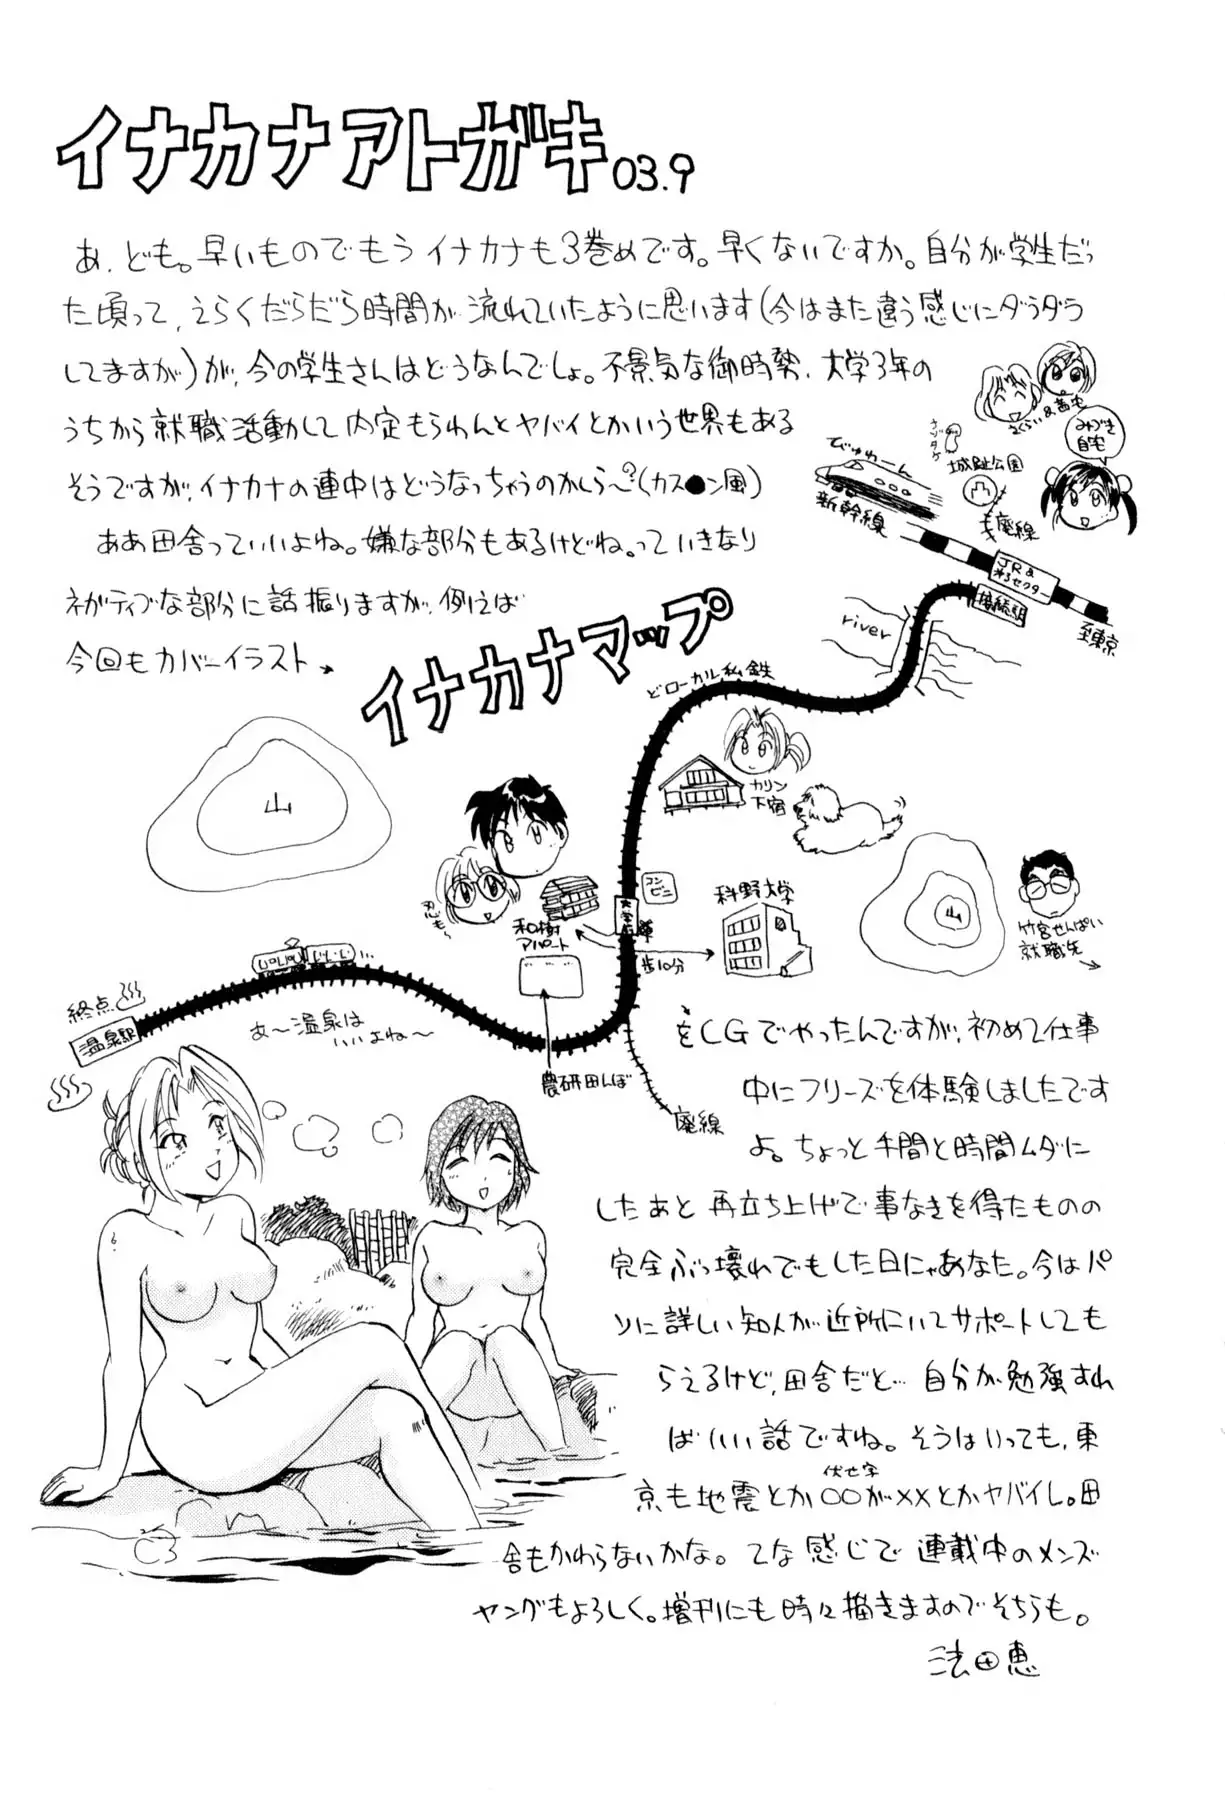 イナカナアトガキ03.9
あ、ども。早いものでもうイナカナも3巻めです。早くないですか。自分が学生だっ
た頃って、えらくだらだら時間が流れていたように思います(今はまた違う感じにダラダラ
してますが)が、今の学生さんはどうなんでしょ。不景気な御時勢、大学3年の
うちから就職活動して内定もらわんとヤバイとかいう世界もある
そうですが、イナカナの連中はどうなっちゃうのかしら〜?(カス●ン風)
ああ田舎っていいよね。嫌な部分もあるけどね。っていきなり
ネガティブな部分に話振りますが、例えば
今回もカバーイラスト
イナカナマップ
さくらい&茜宅
みづき
自宅
城趾公園
びゅわーん
新幹線
廃線
JR&
第3セクター
接続駅
至東京
river
どローカル私鉄
山
カリン
下宿
コンビニ
科野大学
和樹
アパート
歩10分
山
竹宮せんぱい
就職先
終点
温泉駅
あ〜温泉は
いいよね〜
農研田んぼ
廃線
をCGでやったんですが、初めて仕事
中にフリーズを体験しましたです
よ。ちょっと手間と時間ムダに
したあと再立ち上げで事なきを得たものの
完全ぶっ壊れでもした日にゃあなた。今はパ
ソに詳しい知人が近所にいてサポートしても
らえるけど、田舎だと… 自分が勉強すれ
ばいい話ですね。そうはいっても、東
伏せ字
京も地震とか○○が××とかヤバイし。田
舎もかわらないかな。てな感じで連載中のメンズ
ヤングもよろしく。増刊にも時々描きますのでそちらも。
法田恵